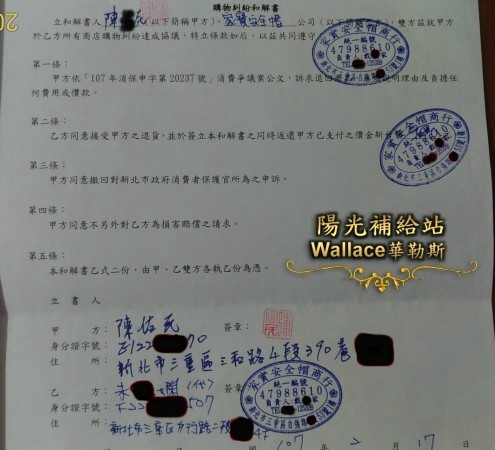 購物糾紛和解書
立和解書人 陳 (以下簡稱甲方)、家寶安全帽 公司(以下簡稱乙方)，雙方茲就甲方
於乙方所有商店購物糾紛達成協議，特立條款如后，以茲共同遵守
第一條：
甲方依「107 年消保申字第 20237 號」消費爭議案公文，訴求退 明理由及負擔任
何費用或價款。
第二條：
乙方同意接受甲方之退貨，並於簽立本和解書之同時返還甲方已支付之價金新台幣
第三條：
甲方同意撤回對新北市政府消費者保護官所為之申訴。
第四條：
甲方同意不另外對乙方為損害賠償之請求。
陽光補給站
Wallace華勒斯
第五條：
本和解書乙式二份，由甲、乙雙方各執乙份為憑。
立書人
甲方： 陳 簽章：
身分證字號： 70
住所： 新北市三重區三和路4段390巷
乙方： 朱 (代) 簽章
身分證字號： 507
住所： 新北市三重區力行路二段
107 年 2 月 17 日
家寶安全帽商行
統一編號
47988610
家寶安全帽商行
統一編號
47988610
家寶安全帽商行
統一編號
47988610